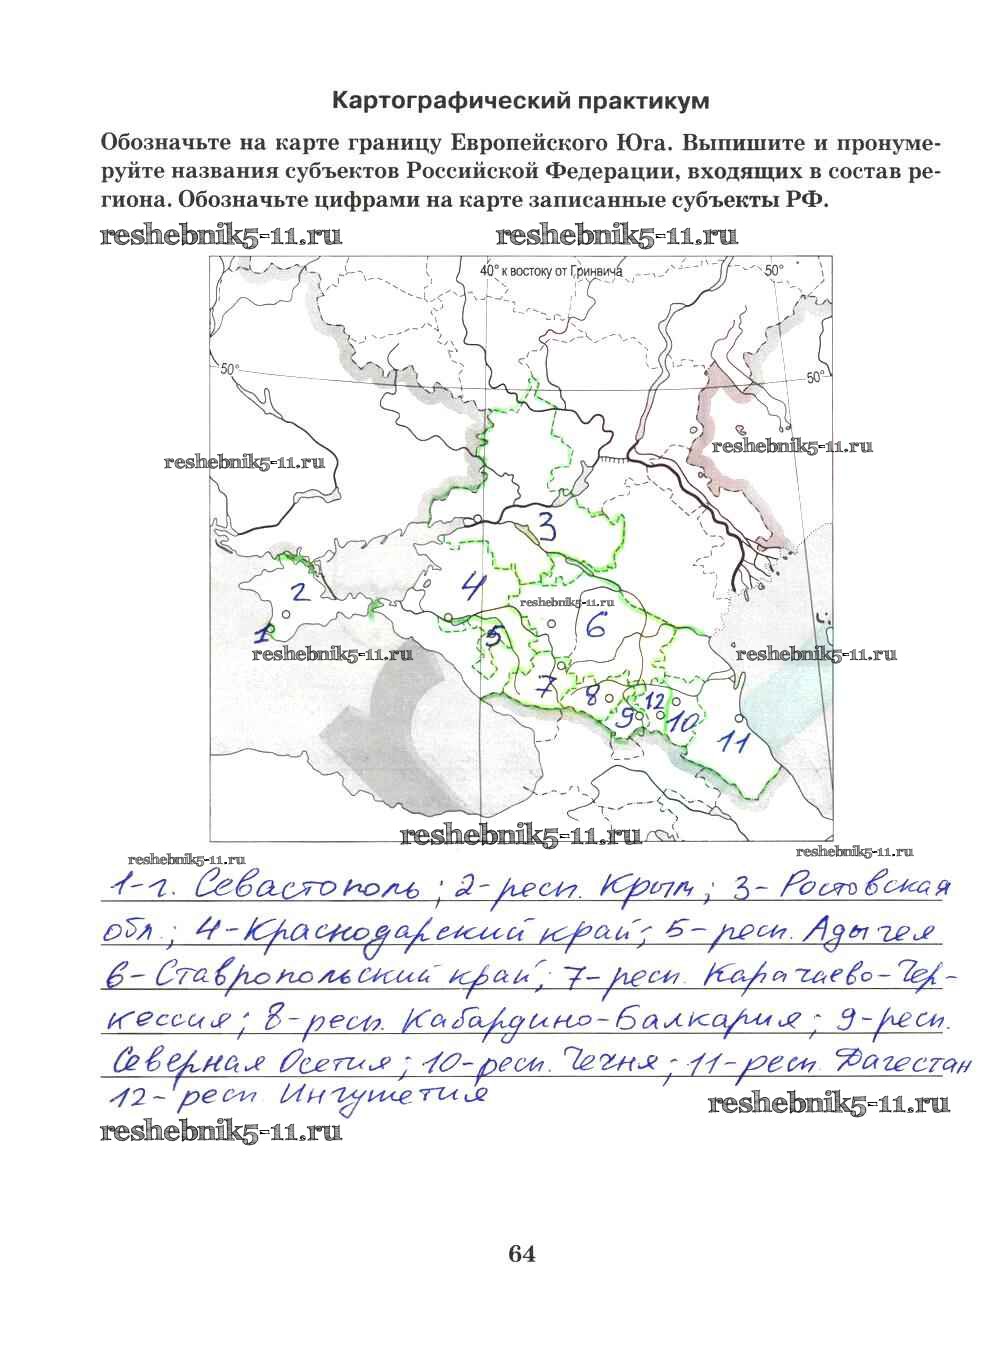 Картографический практикум
Обозначьте на карте границу Европейского Юга. Выпишите и пронуме-
руйте названия субъектов Российской Федерации, входящих в состав ре-
гиона. Обозначьте цифрами на карте записанные субъекты РФ.
reshebnik5-11.ru reshebnik5-11.ru
40° к востоку от Гринвича 50°
50° 50°
reshebnik5-11.ru reshebnik5-11.ru
3
2 4
reshebnik5-11.ru
1 5 6
reshebnik5-11.ru reshebnik5-11.ru
7 8 12
9 10 11
reshebnik5-11.ru
reshebnik5-11.ru reshebnik5-11.ru
1-г. Севастополь; 2-респ. Крым; 3- Ростовская
обл.; 4-Краснодарский край; 5-респ. Адыгея
6-Ставропольский край; 7-респ. Карачаево-Чер-
кессия; 8-респ. Кабардино-Балкария; 9-респ.
Северная Осетия; 10-респ. Чечня; 11-респ. Дагестан
12-респ Ингушетия
reshebnik5-11.ru
reshebnik5-11.ru
64